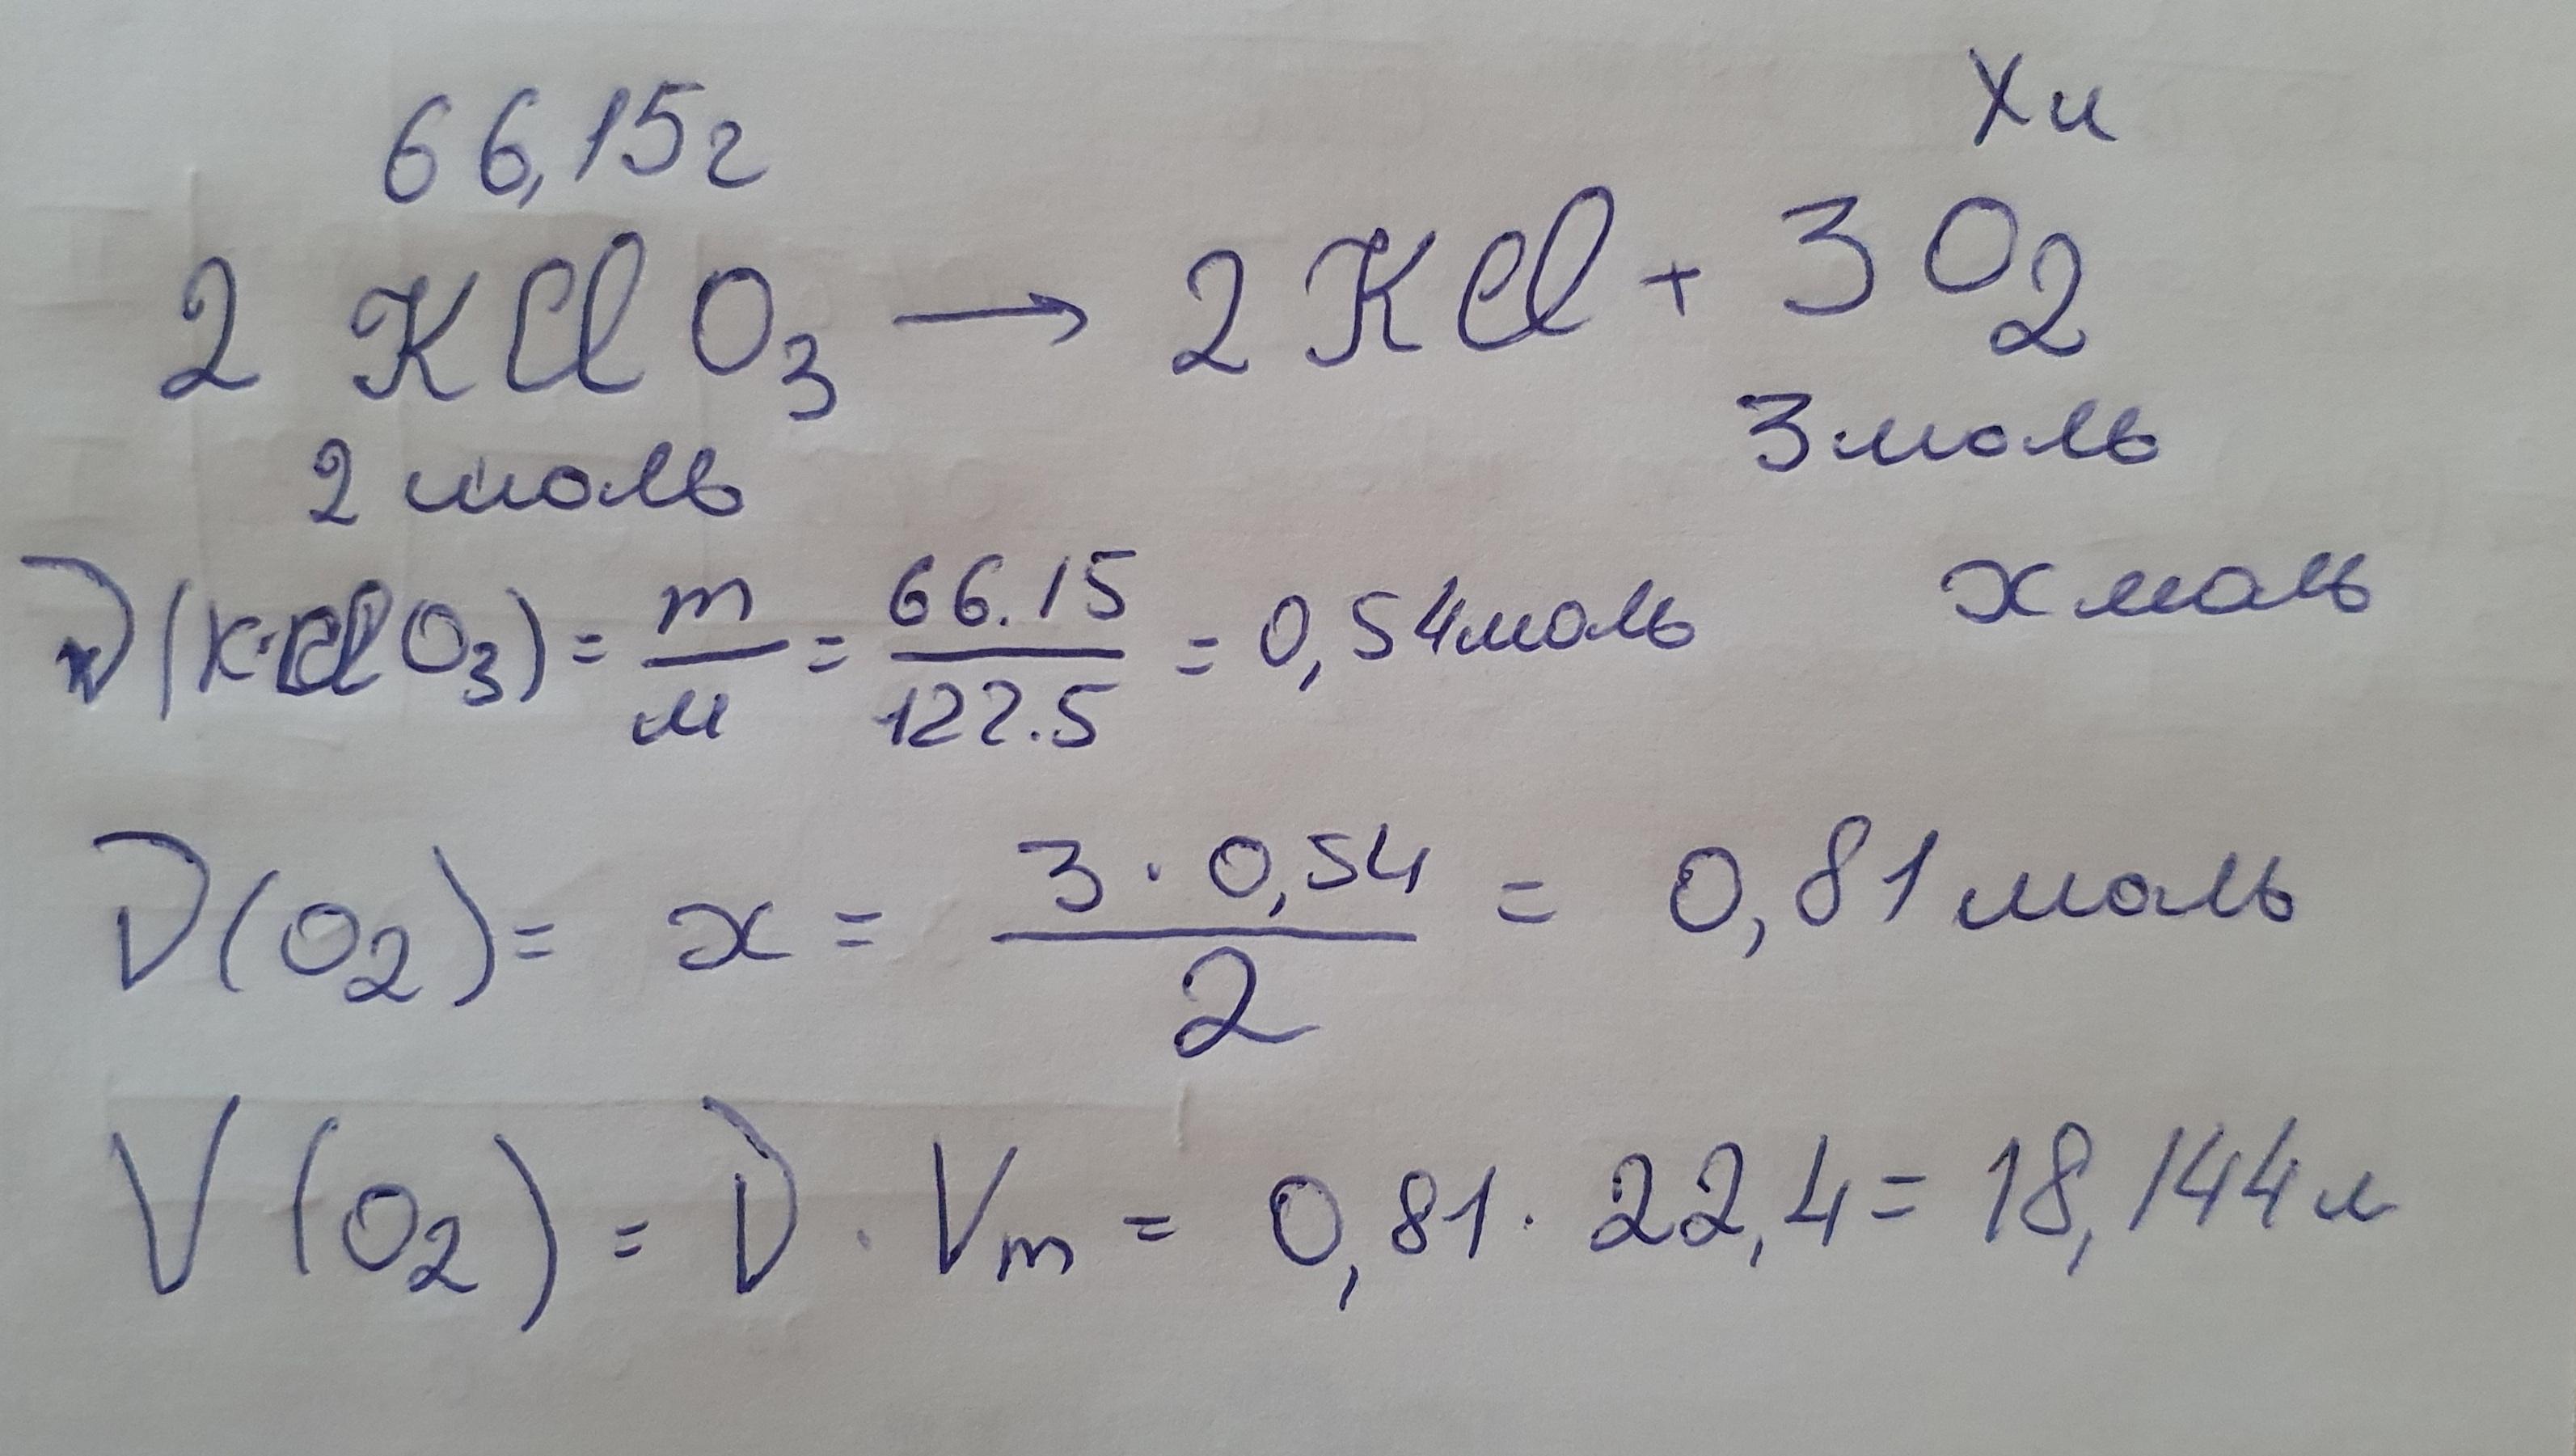 66,15г Xл
2 KClO₃ → 2 KCl + 3 O₂
2 моль 3 моль
ν(KClO₃) = m/M = 66.15/122.5 = 0,54 моль x моль
ν(O₂) = x = 3 · 0,54/2 = 0,81 моль
V(O₂) = ν · Vm = 0,81 · 22,4 = 18,144 л